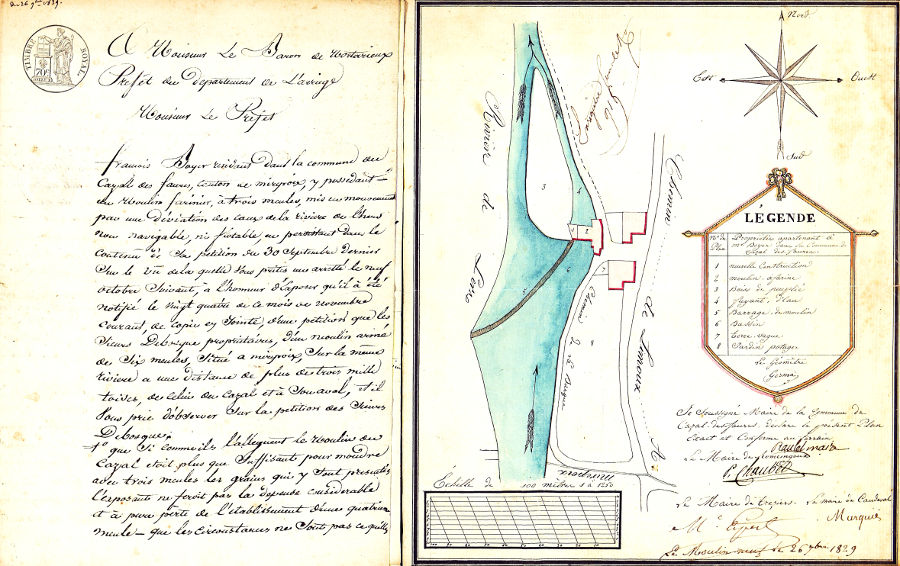 du 26 9bre 1829.
TIMBRE ROYAL
70c
A Monsieur Le Baron de Mortarieux
Préfet du département de L'ariège
Monsieur Le Préfet
francois Boyer résidant dans la commune du
Cazal des faures, canton de mirepoix, y possédant
un Moulin farinier, a trois meules, mis en mouvement
par une déviation des eaux de la rivière du Lhers
non navigable, ni flotable, en persistant dans le
contenu de sa pétition du 30 Septembre dernier
Sur le vû de la quelle vous prîtes un arrêté le neuf
octobre Suivant, a L'honneur d'exposer qu'il a été
notifié le vingt quatre de ce mois de novembre
courant, de copie cy Jointe, d'une pétition que les
Sieurs Debosque propriétaires, d'un moulin armé
de Six meules, Situé a mirepoix, Sur la même
rivière a une distance de plus de trois mille
toises, de celui du Cazal et a Son aval, et il
Vous prie d'observer Sur la pétition des Sieurs
Debosque;
1° que Si comme ils l'allèguent le Moulin du
Cazal etoit plus que Suffisante pour moudre
avec trois meules les grains qui y Sont presentés
l'exposante ne feroit pas la depense considérable
et a pure perte de l'établissement d'une quatrième
meule – que les circonstances ne Sont pas ce qu'elles
Nord
Est
Ouest
Sud
Rivière de
Lers
Chemin
de Limoux
A
Mirepoix
Chemin
LÉGENDE
Nos du Plan
Propriétés apartenant à
Mr Boyer dans la Commune de
Cazal des faures
1 nouvelle Construction
2 moulin a farine
3 Bois de peuplié
4 fuyant, Plan
5 Barrage du moulin
6 Bassin
7 Terre vague
8 Jardin potager
Le Géomètre
Germa
Je Soussigné Maire de la Commune de
Cazal des faures, déclare le présent Plan
Exact et Conforme au terrain
Le Maire de
P. Chaubet
Le Maire de
Le maire de Caudeval
Marquié
Le Moulin neuf le 26 9bre 1829
Echelle de 100 mètres 1 à 1250